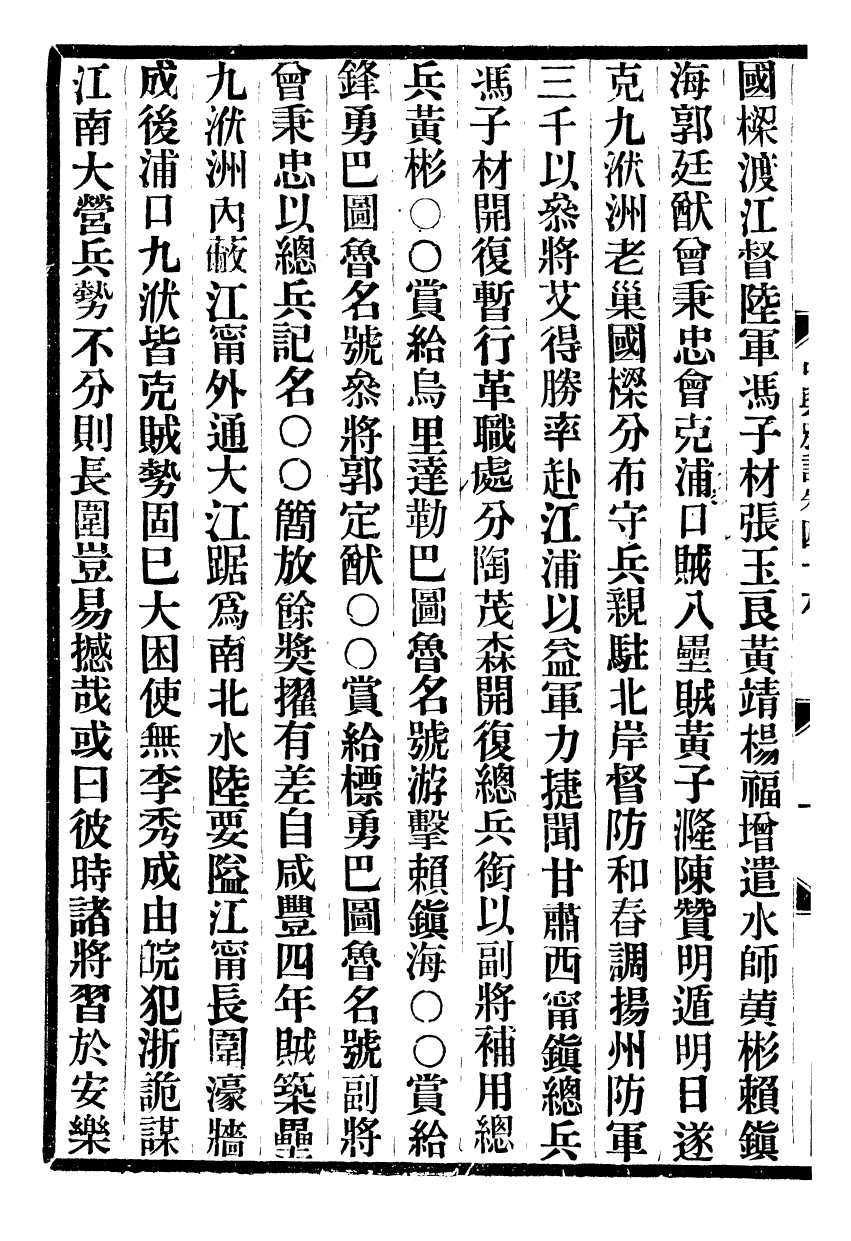 國樑渡江督陸軍馮子材張玉良黃靖楊福增遣水師黃彬賴鎭
海郭廷猷曾秉忠會克浦口賊八壘賊黃子漋陳贊明遁明日遂
克九洑洲老巢國樑分布守兵親駐北岸督防和春調揚州防軍
三千以叅將艾得勝率赴江浦以益軍力捷聞甘肅西甯鎭總兵
馮子材開復暫行革職處分陶茂森開復總兵銜以副將補用總
兵黃彬○○賞給烏里達勒巴圖魯名號游擊賴鎭海○○賞給
鋒勇巴圖魯名號叅將郭定猷○○賞給標勇巴圖魯名號副將
曾秉忠以總兵記名○○簡放餘獎擢有差自咸豐四年賊築壘
九洑洲內蔽江甯外通大江踞爲南北水陸要隘江甯長圍濠牆
成後浦口九洑皆克賊勢固已大困使無李秀成由皖犯浙詭謀
江南大營兵勢不分則長圍豈易撼哉或曰彼時諸將習於安樂